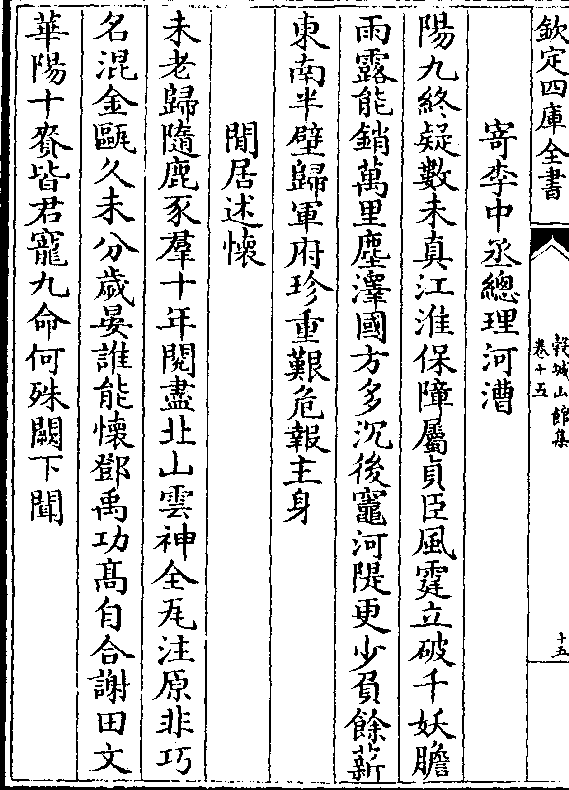 欽定四庫全書
糓城山館集
卷十五
十五
寄李中丞總理河漕
陽九終疑數未真江淮保障屬貞臣風霆立破千妖膽
雨露能銷萬里塵澤國方多沉後竈河隄更少負餘薪
東南半壁歸軍府珍重艱危報主身
閒居述懷
未老歸隨鹿豕羣十年閱盡北山雲神全瓦注原非巧
名混金甌久未分歲晏誰能懷鄧禹功髙自合謝田文
華陽十賚皆君寵九命何殊闕下聞